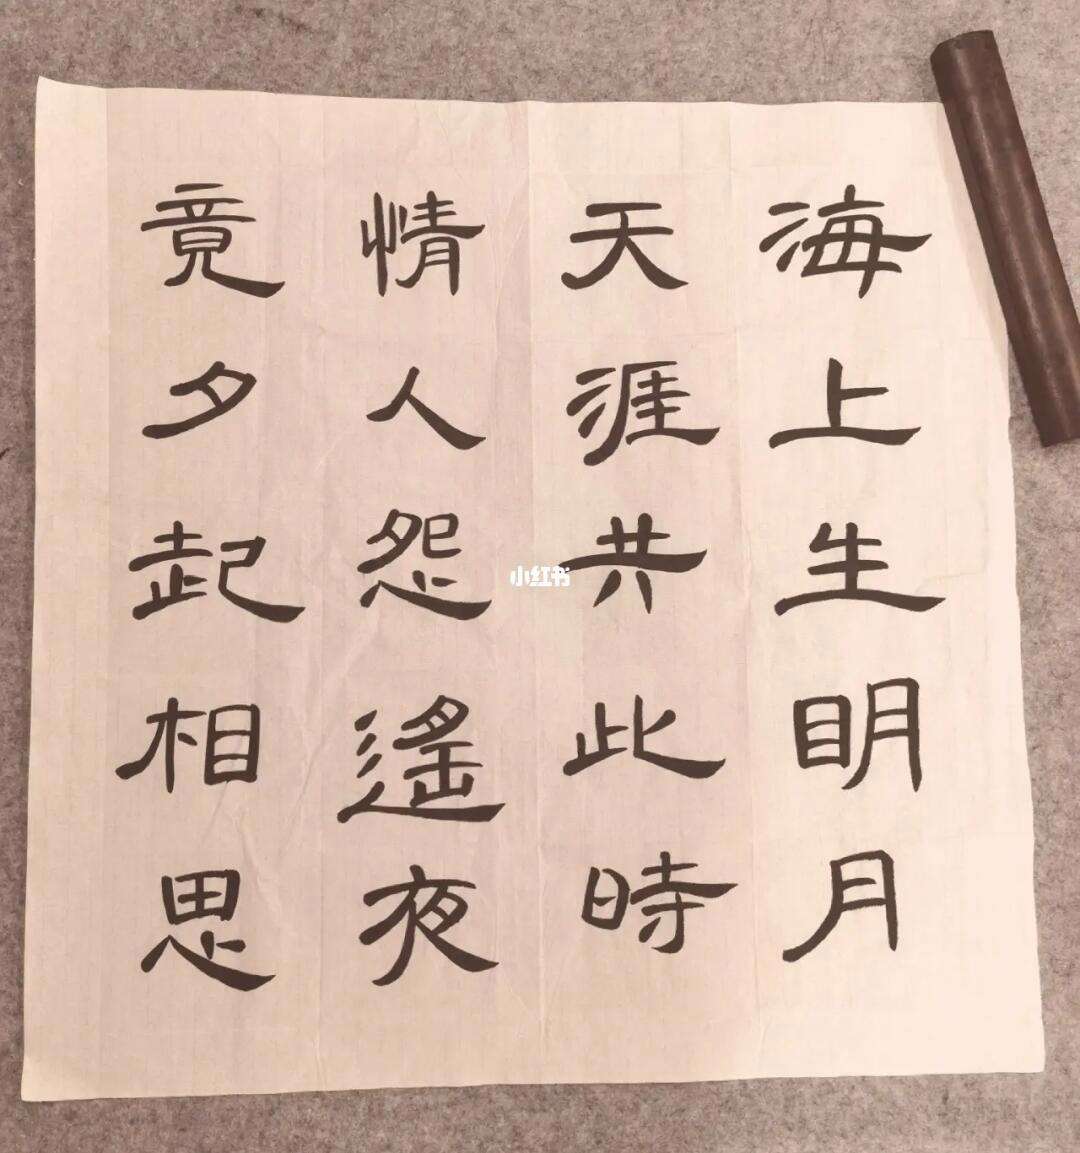 海上生明月
天涯共此時
情人怨遙夜
竟夕起相思
小红书